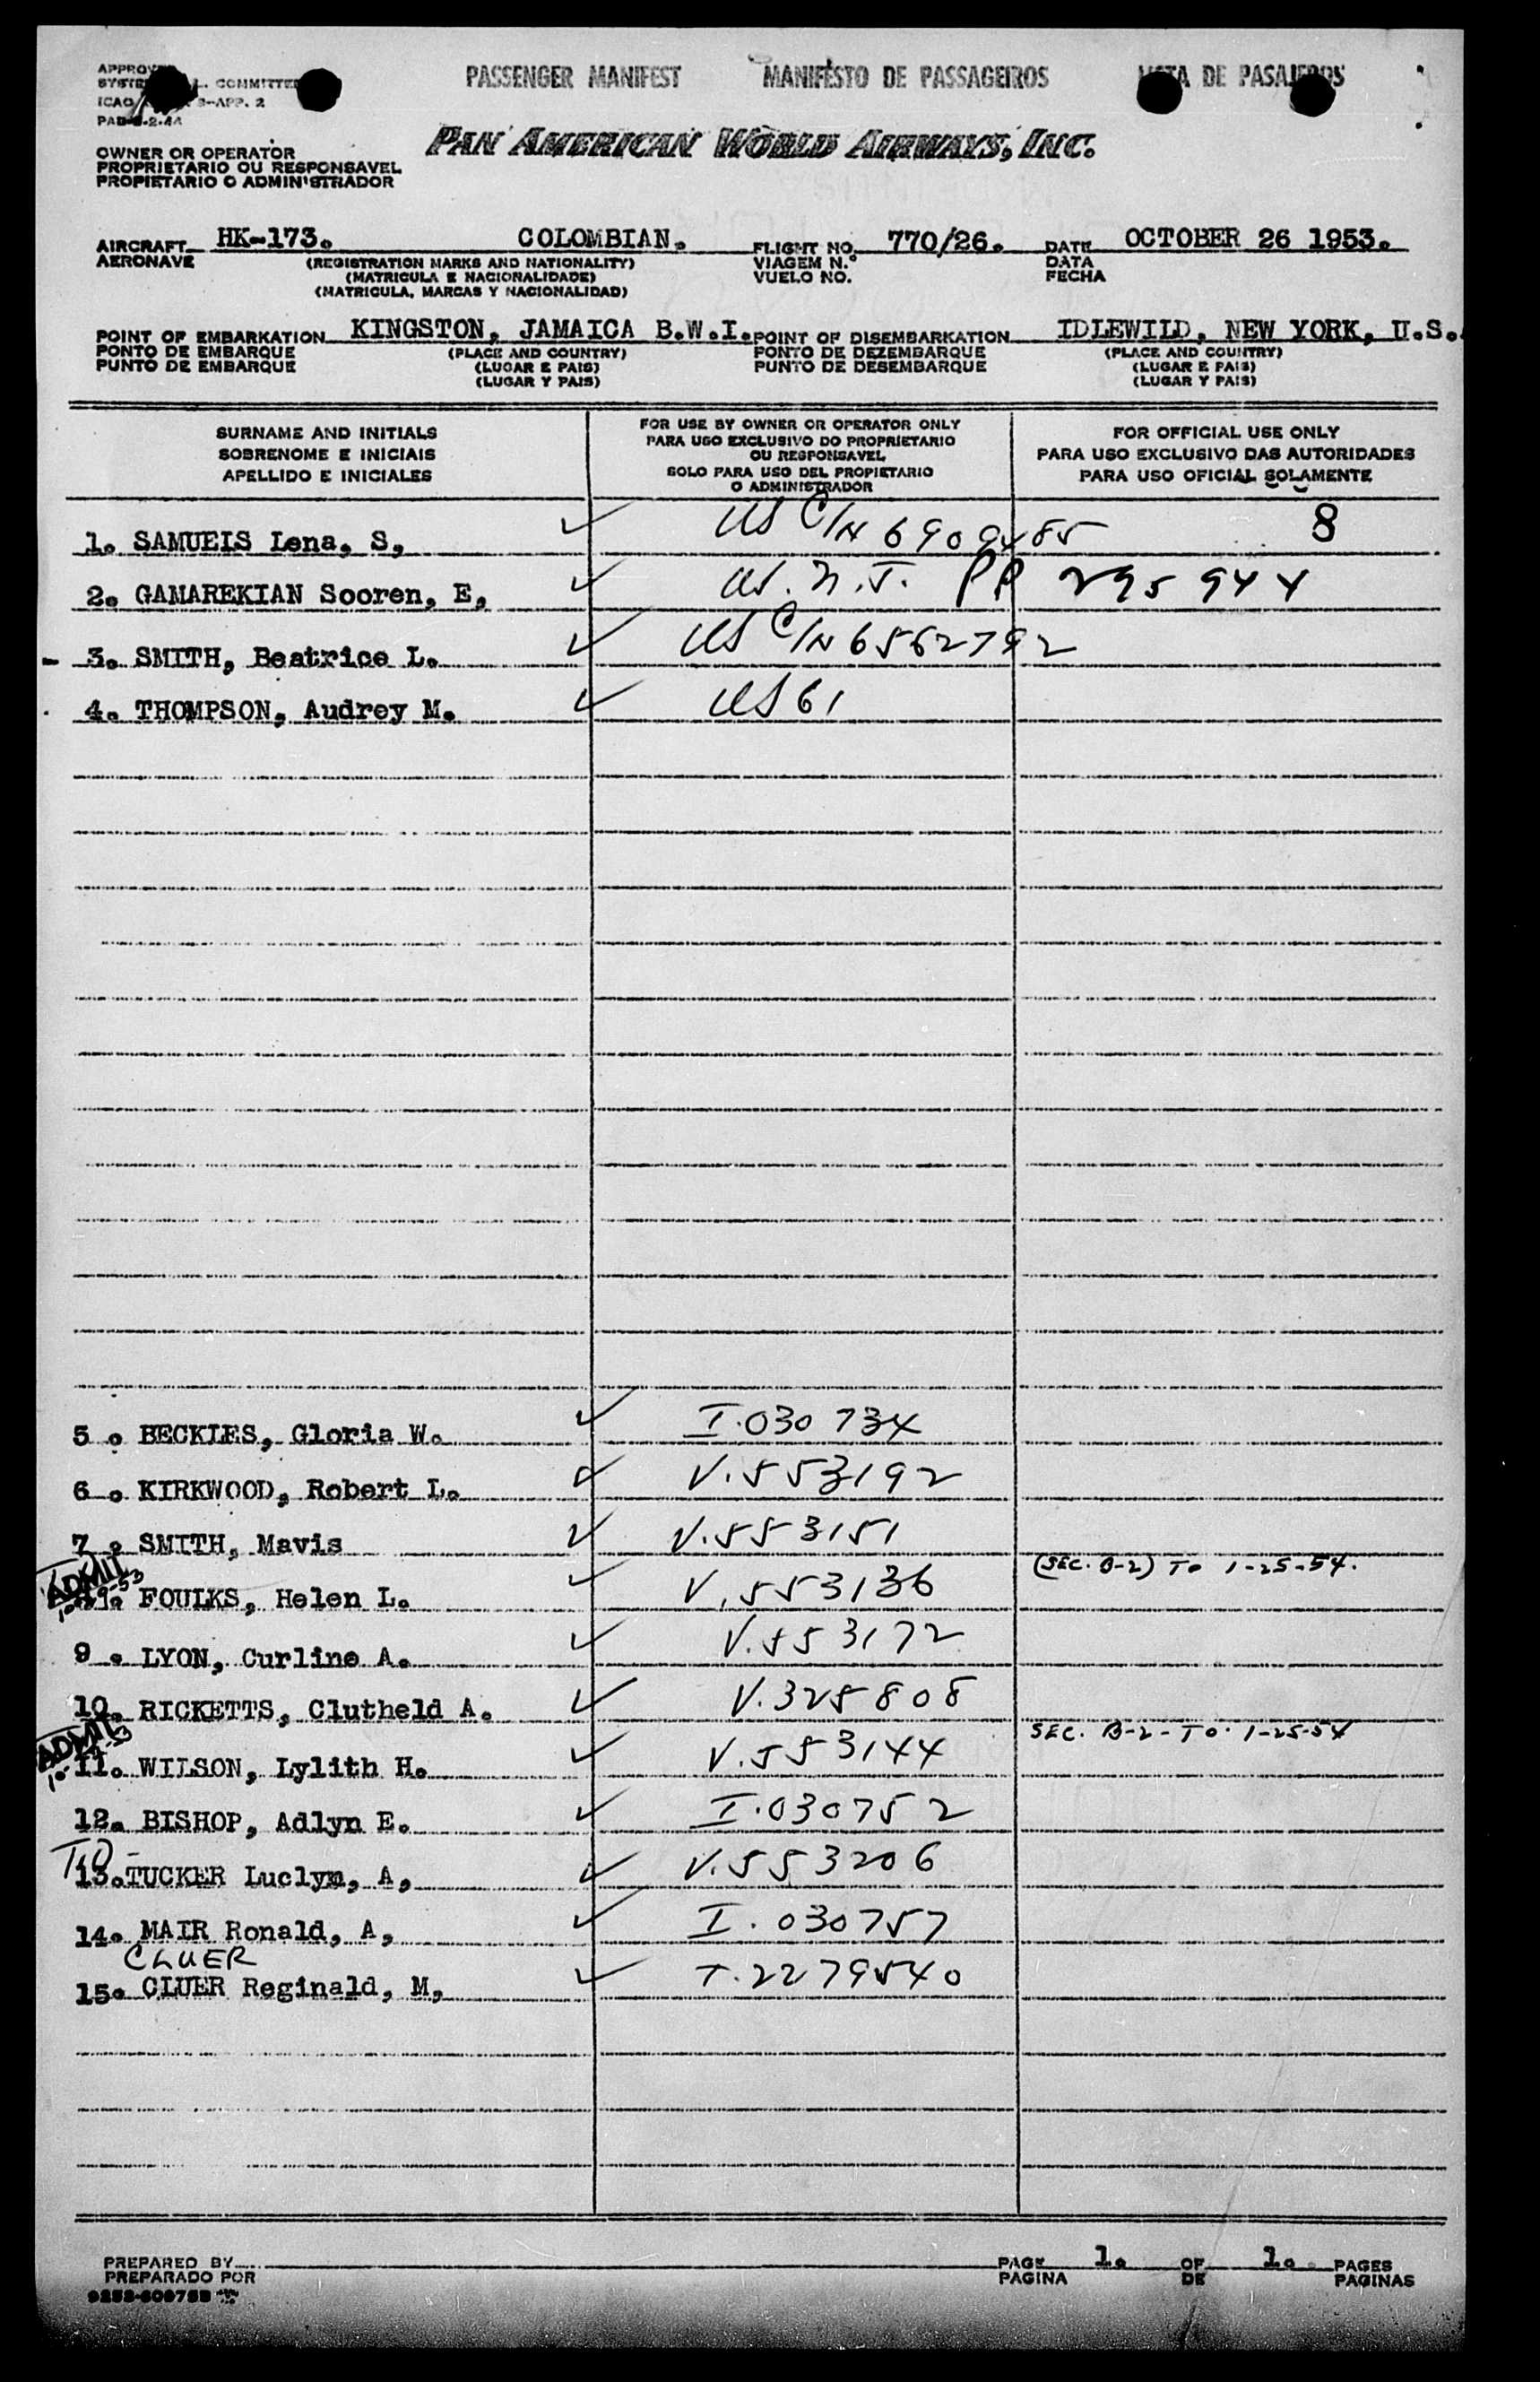 PASSENGER MANIFEST MANIFESTO DE PASSAGEIROS DE PASAJEROS
COMMITTEE
ICAO 9-APP. 2
PAN AMERICAN WORLD AIRWAYS, INC.
OWNER OR OPERATOR
PROPRIETARIO OU RESPONSAVEL
PROPIETARIO O ADMINISTRADOR
AIRCRAFT HK-173. COLOMBIAN. FLIGHT NO. 770/26. DATE OCTOBER 26 1953.
AERONAVE (REGISTRATION MARKS AND NATIONALITY) VIAGEM N.º DATA
(MATRICULA E NACIONALIDADE) VUELO NO. FECHA
(MATRICULA, MARCAS Y NACIONALIDAD)
POINT OF EMBARKATION KINGSTON, JAMAICA B.W.I. POINT OF DISEMBARKATION IDLEWILD, NEW YORK, U.S.
PONTO DE EMBARQUE (PLACE AND COUNTRY) PONTO DE DEZEMBARQUE (PLACE AND COUNTRY)
PUNTO DE EMBARQUE (LUGAR E PAIS) PUNTO DE DESEMBARQUE (LUGAR E PAIS)
(LUGAR Y PAIS) (LUGAR Y PAIS)
SURNAME AND INITIALS
SOBRENOME E INICIAIS
APELLIDO E INICIALES
FOR USE BY OWNER OR OPERATOR ONLY
PARA USO EXCLUSIVO DO PROPRIETARIO
OU RESPONSAVEL
SOLO PARA USO DEL PROPIETARIO
O ADMINISTRADOR
FOR OFFICIAL USE ONLY
PARA USO EXCLUSIVO DAS AUTORIDADES
PARA USO OFICIAL SOLAMENTE
1. SAMUELS Lena, S, ✓ US C/N 6909485 8
2. GAMAREKIAN Sooren, E, ✓ US. N.J. PP 295944
- 3. SMITH, Beatrice L. ✓ US C/N 6562792
4. THOMPSON, Audrey M. ✓ US 61
5. BECKLES, Gloria W. ✓ I.030734
6. KIRKWOOD, Robert L. ✓ V.553192
7. SMITH, Mavis ✓ V.553151
ADMIT FOULKS, Helen L. ✓ V.553136 (SEC. B-2) TO 1-25-54.
9. LYON, Curline A. ✓ V.553172
10. RICKETTS, Clutheld A. ✓ V.325808
ADMIT 11. WILSON, Lylith H. ✓ V.553144 SEC. B-2-TO. 1-25-54
12. BISHOP, Adlyn E. ✓ I.030752
13. TUCKER Luclyn, A, ✓ V.553206
14. MAIR Ronald, A, ✓ I.030757
CLUER
15. CLUER Reginald, M, ✓ T.2279540
PREPARED BY PAGE 1. OF 1. PAGES
PREPARADO POR PAGINA DE PAGINAS